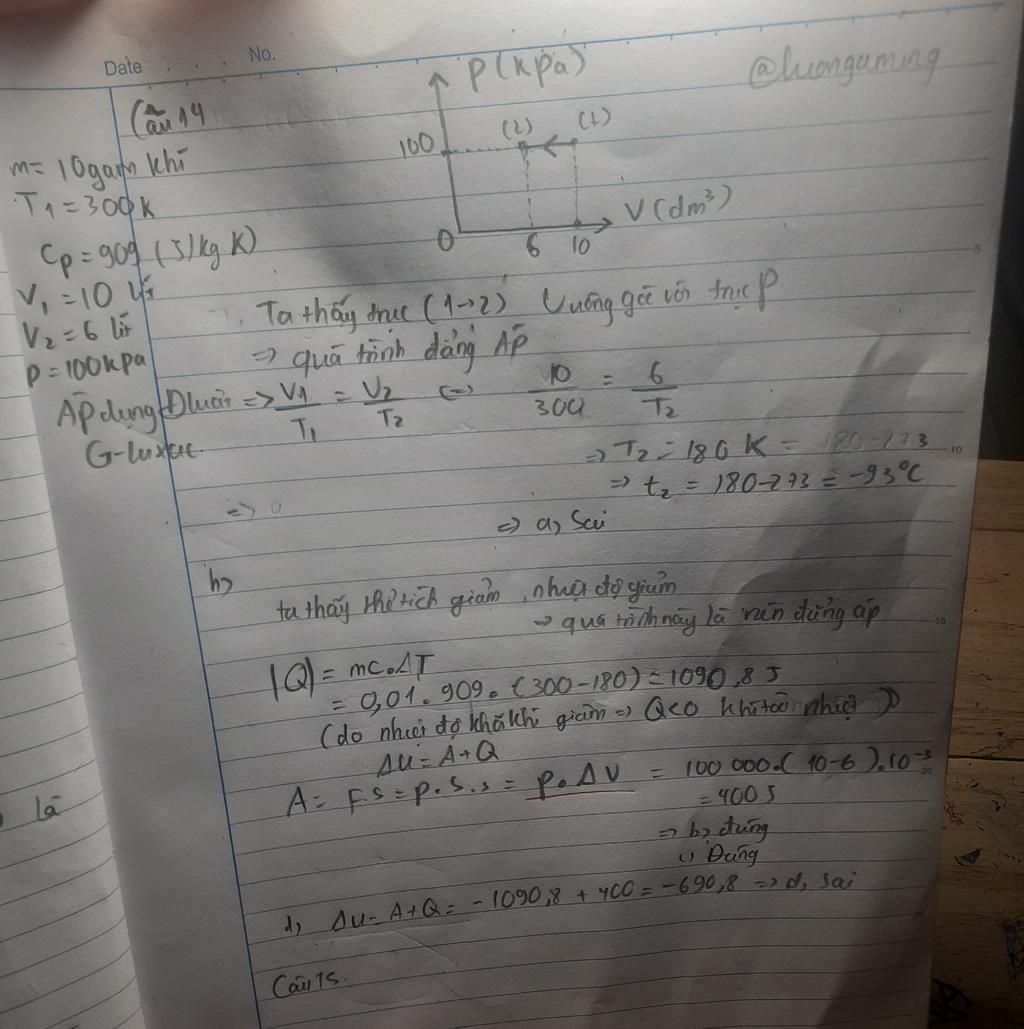 Date No.
@luonguming
Câu 14
P(kpa)
100
(2) (1)
V(dm³)
0 6 10
m = 10gam khí
T1 = 300K
Cp = 909 (J/kg.K)
V1 = 10 lít
V2 = 6 lít
P = 100kpa
Ta thấy trục (1→2) Vuông góc với trục P
=> quá trình đẳng ÁP
Áp dụng Đluật => V1/T1 = V2/T2 <=> 10/300 = 6/T2
G-luxac.
=> T2 = 180 K = 180-273
=> t2 = 180-273 = -93°C
=> a, Sai
b)
ta thấy thể tích giảm, nhiệt độ giảm
→ quá trình này là nén đẳng áp
|Q| = mc.ΔT
= 0,01.909.(300-180) = 1090,8 J
(do nhiệt độ khí giảm => Q<0 khí toả nhiệt)
ΔU = A+Q
A = F.s = p.S.s = p.ΔV = 100 000.(10-6).10⁻³
= 400 J
=> b, đúng
c) Đúng
d, ΔU = A+Q = -1090,8 + 400 = -690,8 => d, sai
là
Câu 15.
5
10
15
20